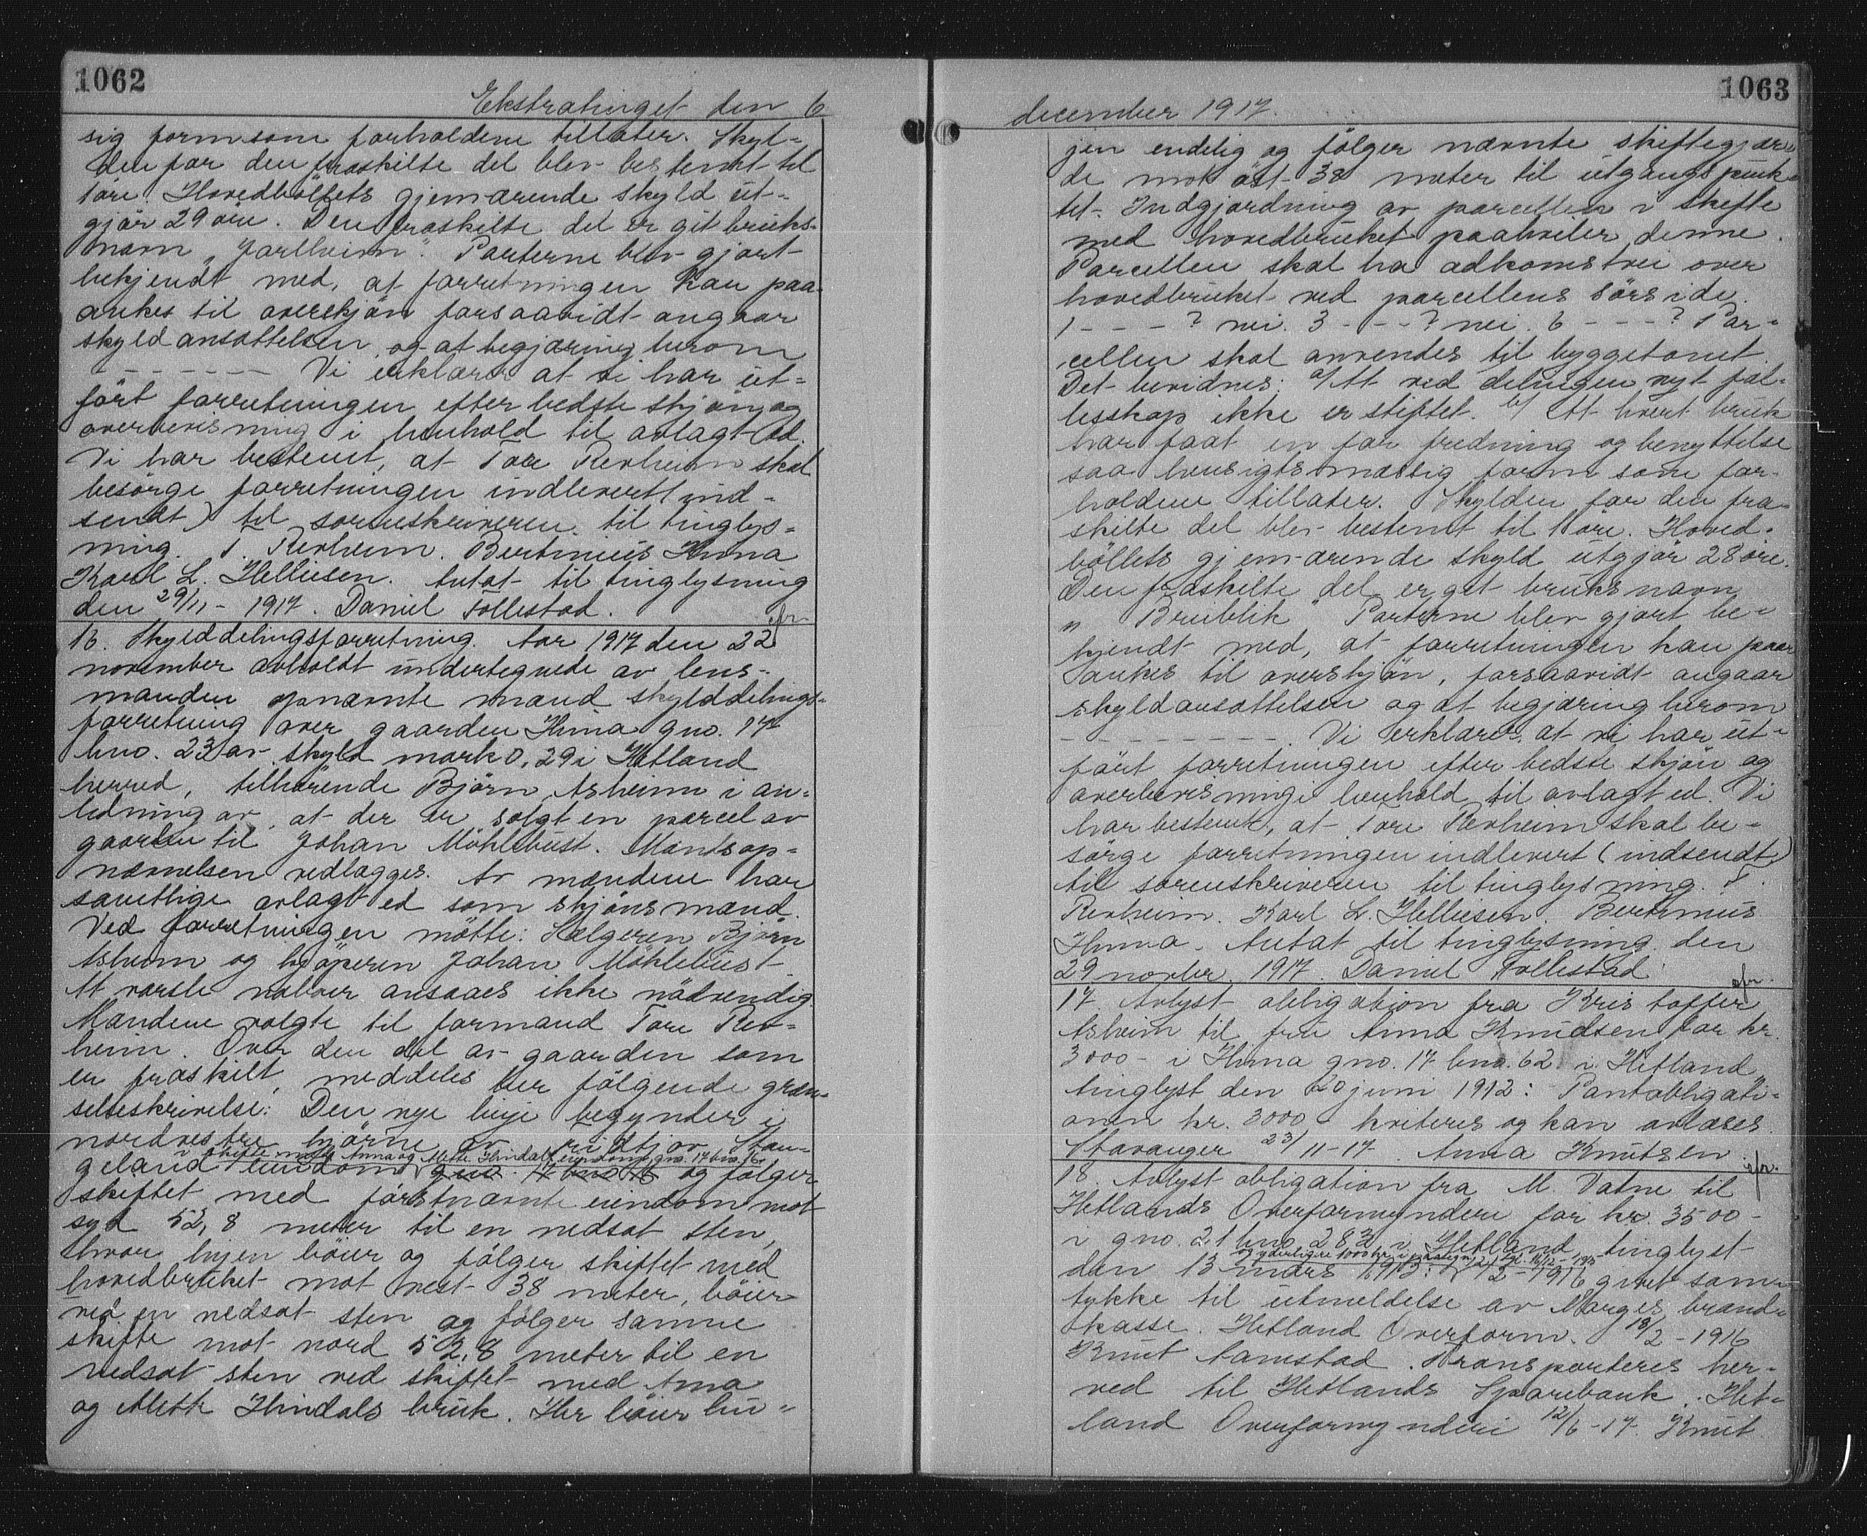 1062
Ekstratinget den 6
sig form som forholdene tillater. Skyl-
den for den fraskilte del blev bestemt til
1 øre. Hovedbøllets gjenværende skyld ut-
gjør 29 øre. Den fraskilte del er git bruks-
navn "Jarlheim". Parterne blev gjort
bekjendt med, at forretningen kan paa-
ankes til overskjøn forsaavidt angaar
skyldansættelsen, og at begjæring herom
- - - - - - - Vi erklærer at vi har ut-
ført forretningen efter bedste skjøn og
overbevisning i henhold til avlagt ed.
Vi har bestemt, at Tore Revheim skal
besørge forretningen indlevert (ind-
sendt) til sorenskriveren til tinglys-
ning. T. Revheim. Bertinius Hinna
Karl L. Helliesen. Antat til tinglysning
den 29/11 - 1917. Daniel Follestad.
16. Skylddelingsforretning. Aar 1917 den 22
november avholdt undertegnede av lens-
manden opnævnte mænd skylddelings-
forretning over gaarden Hinna gno. 17
bno. 23 av skyld mark 0,29 i Hetland
herred, tilhørende Bjørn Asheim i an-
ledning av, at der er solgt en parcel av
gaarden til Johan Møhlebust. Mandsop-
nævnelsen vedlægges. Av mændene har
samtlige avlagt ed som skjønsmænd.
Ved forretningen møtte: Sælgeren Bjørn
Asheim og kjøperen Johan Møhlebust.
At varsle naboer ansaaes ikke nødvendig.
Mændene valgte til formand Tore Rev-
heim. Over den del av gaarden som
er fraskilt, meddeles her følgende græn-
sebeskrivelse: Den nye linje begynder i
nordvestre hjørne av
i skifte med Anna og Mette Hindals eiendom gno. 17 bno. 16
geland eiendom gno. 17 bno 16 og følger
skiftet med førstnævnte eiendom mot
syd 52,8 meter til en nedsat sten,
hvor linjen bøier og følger skiftet med
hovedbruket mot vest 38 meter, bøier
ved en nedsat sten og følger samme
skifte mot nord 52,8 meter til en
nedsat sten ved skiftet med Anna
og Mette Hindals bruk. Her bøier lin-
1063
december 1917.
jen endelig og følger nævnte skiftegjær-
de mot øst 38 meter til utgangspunk-
tet. Indgjærdning av parcellen i skifte
med hovedbruket paahviler denne.
Parcellen skal ha adkomstvei over
hovedbruket ved parcellens sørside.
1 - - - ? nei. 3 - - - ? nei. 6 - - - ? Par-
cellen skal anvendes til byggetomt.
Det bevidnes: a/ At ved delingen nyt fæl-
lesskap ikke er stiftet. b/ At hvert bruk
har faat en for fredning og benyttelse
saa hensigtsmæssig form som for-
holdene tillater. Skylden for den fra-
skilte del blev bestemt til 1 øre. Hoved-
bøllets gjenværende skyld utgjør 28 øre.
Den fraskilte del er git bruksnavn
"Breiblik". Parterne blev gjort be-
kjendt med, at forretningen kan paa-
ankes til overskjøn, forsaavidt angaar
skyldansættelsen og at begjæring herom
- - - - - - - - -. Vi erklærer at vi har ut-
ført forretningen efter bedste skjøn og
overbevisning i henhold til avlagt ed. Vi
har bestemt, at Tore Revheim skal be-
sørge forretningen indlevert (indsendt)
til sorenskriveren til tinglysning. T.
Revheim. Karl L. Helliesen. Bertinius
Hinna. Antat til tinglysning den
29 novbr. 1917. Daniel Follestad.
17. Avlyst obligation fra Kristoffer
Asheim til fru Anna Knudsen for kr.
3000- i Hinna gno. 17 bno. 62 i Hetland
tinglyst den 20 juni 1912: Pantobligati-
onen kr. 3000 kviteres og kan avlæses
Stavanger 23/11-17 Anna Knutsen.
18. Avlyst obligation fra M. Vatne til
Hetlands Overformynderi for kr. 3500-
i gno. 21 bno. 282 i Hetland, tinglyst
den 13 mars 1913: 12/2-1916 givet sam-
tykke til utmeldelse av Norges brand-
kasse. Hetland Overform. 18/2-1916
Knut Aamstad. Transporteres her-
ved til Hetlands Sparebank. Het-
land Overformynderi 12/6-17 Knut